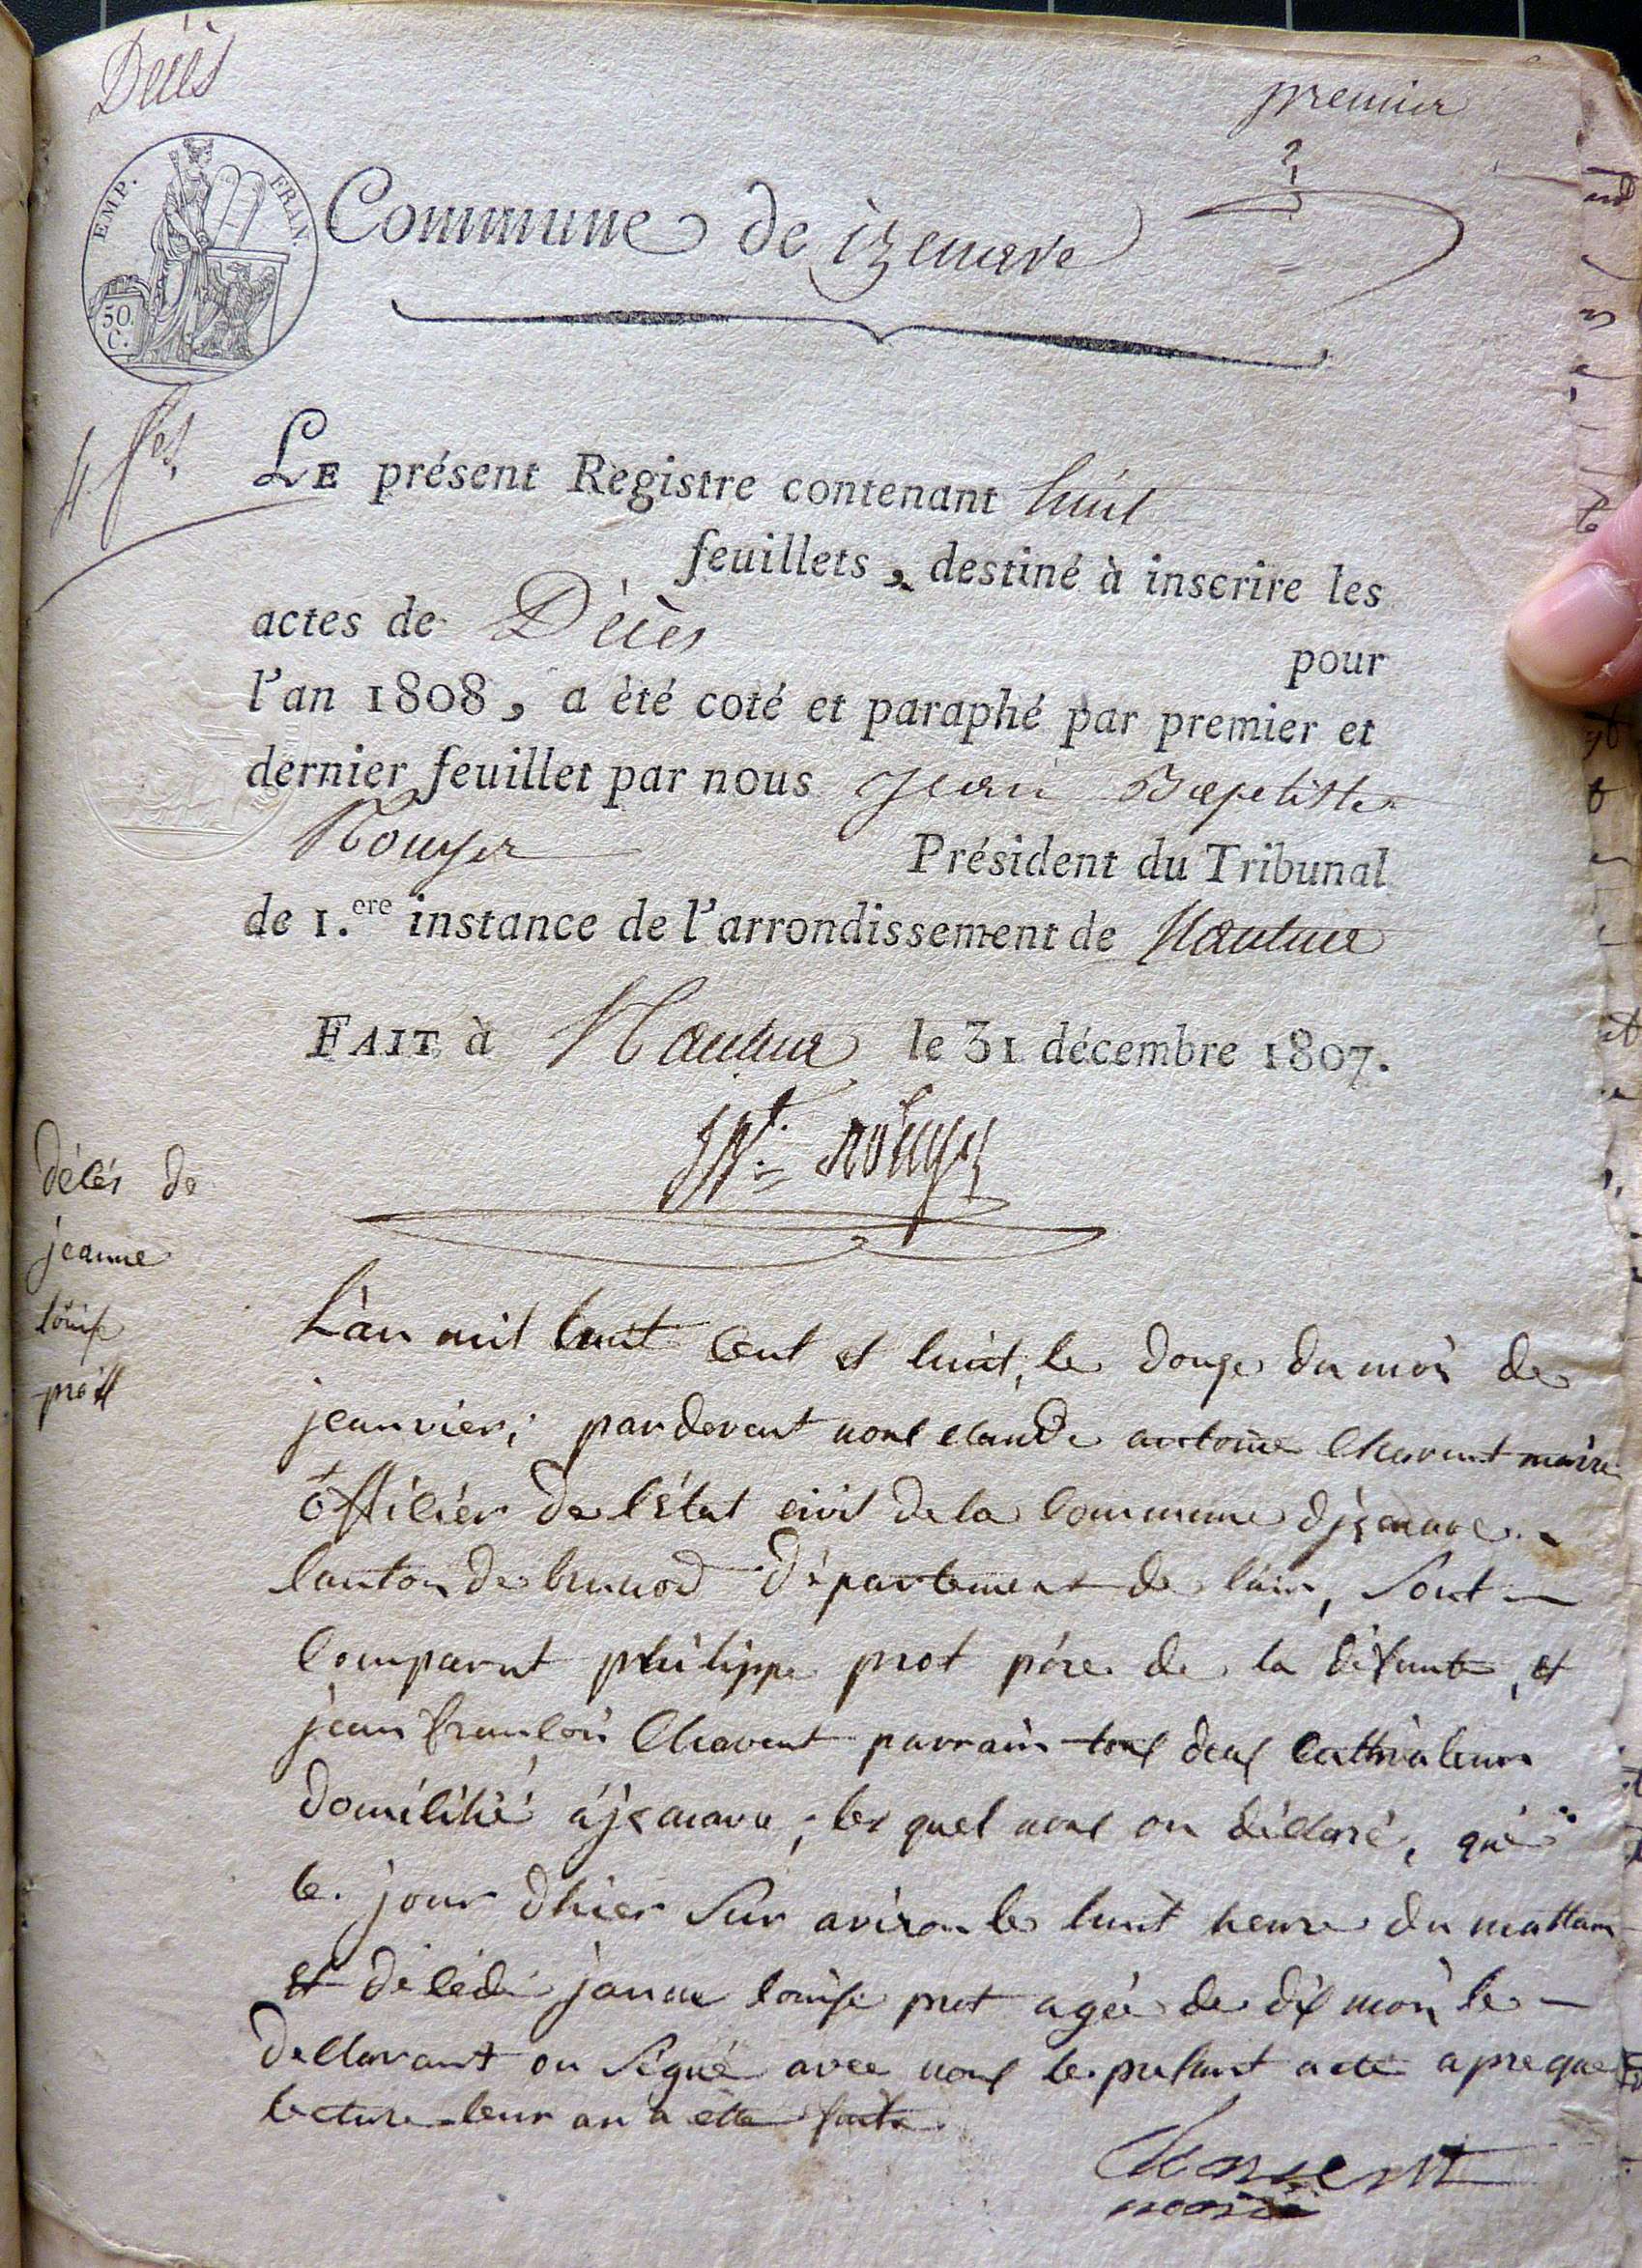 Décès
premier
EMP. FRAN.
50 C.
Commune de izenave
4 f.es
LE présent Registre contenant huit
feuillets, destiné à inscrire les
actes de Décès
pour
l'an 1808, a èté coté et paraphé par premier et
dernier feuillet par nous Jean Baptiste
Rouyer
Président du Tribunal
de 1.ere instance de l'arrondissement de Nantua
FAIT à Nantua le 31 décembre 1807.
Jn Bte Rouyer
décés de
jeanne
louise
prost
L'an mil huit cent et huit, le douze du mois de
jeanvier; pardevent nous claude antoine Charvent maire
officiér de l'état civil de la commune d'jzenave
canton de brenod département de l'ain, sont
comparut philippe prot pére de la défunte, et
jean françois Chavent parrain tous deux cultivateur
domicilié à jzenave; les quel nous on déclaré, que
le jour dhier sur aviron les huit heure du mattain
et décédé janne louise prot agée de dix mois les
dellarant on signé avec nous le présant acte apre que
lecture leur an a etté faite
Charvent
maire